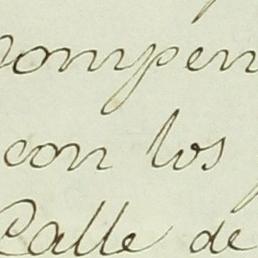 rompen
con los
Calle de